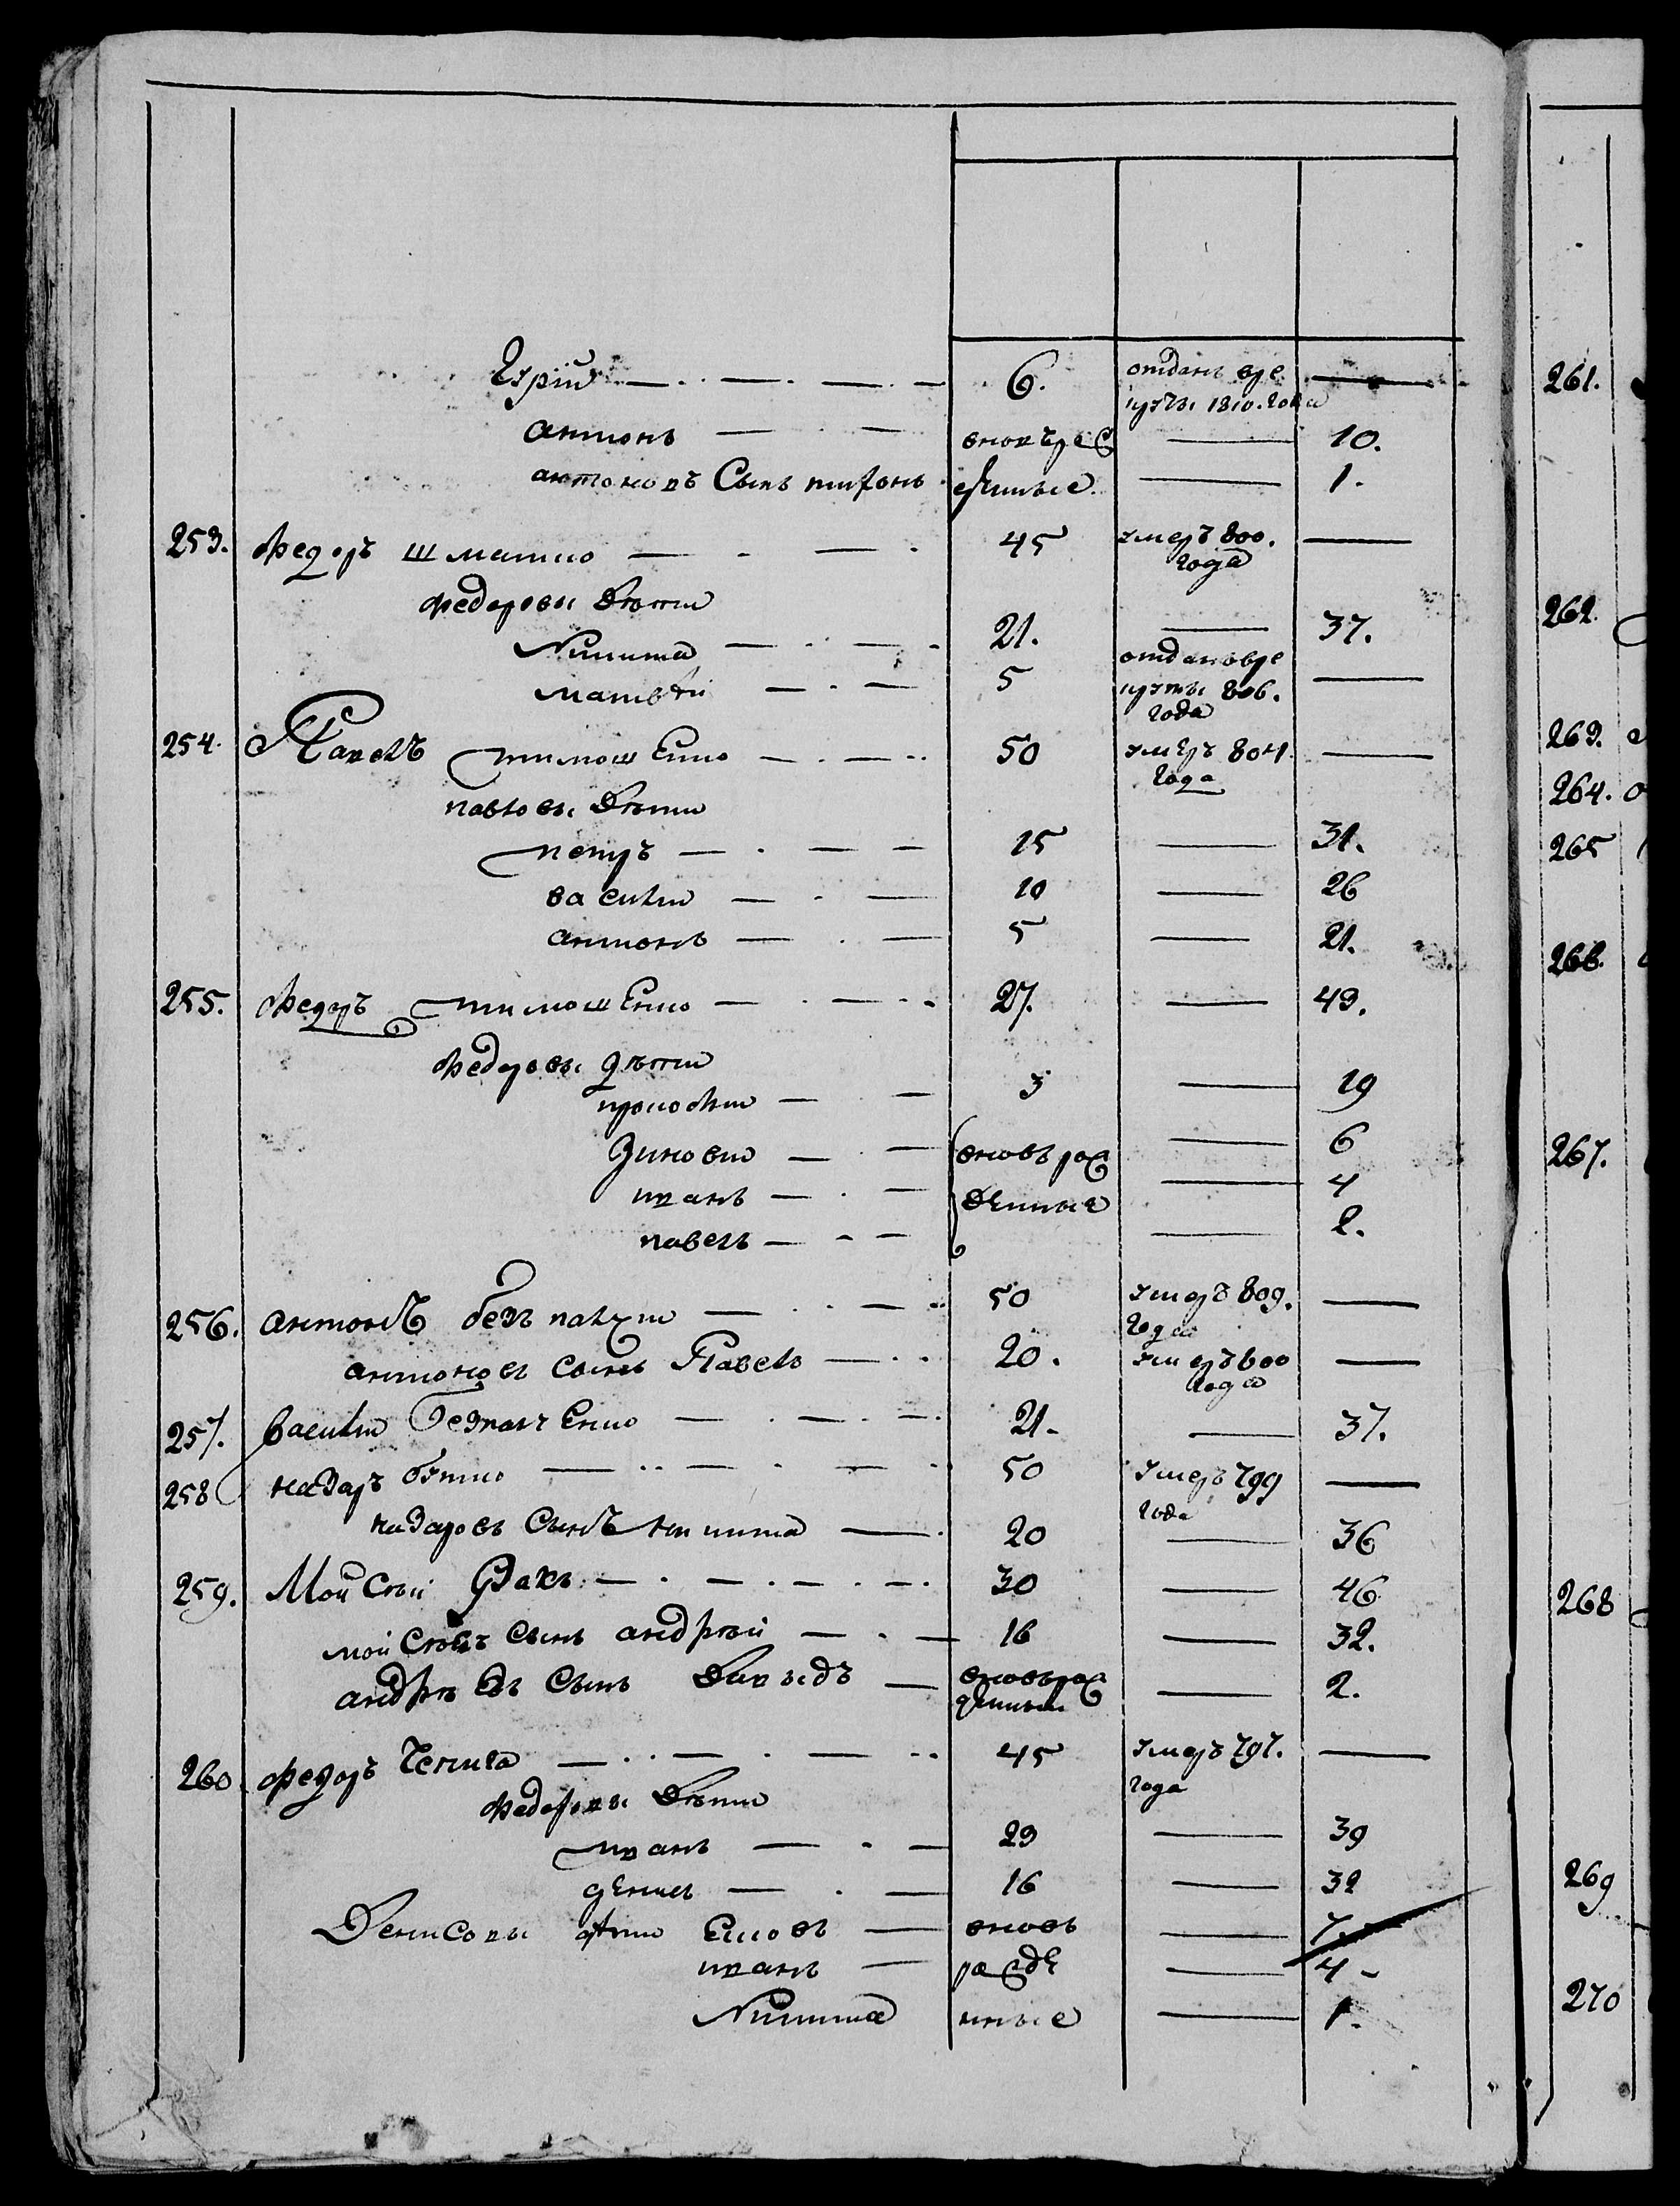 Егрій — 6. отданъ вре
круты 1810. года —
антонъ — вновъ рож — 10.
антоновъ Сынъ тифонъ денные — 1.
253. Федоръ Шматко — 45 умеръ 800. —
года
Федоровы дѣти
Никита — 21. — 37.
матвѣй — 5 отданъ вре
круты 806. —
года
254. Павелъ тимошенко — 50 умеръ 804. —
года
павловы дѣти
петръ — 15 — 31.
василій — 10 — 26
антонъ — 5 — 21.
255. Федоръ тимошенко — 27. — 43.
Федоровы дѣти
прокофій — 3 — 19
Зиновій — вновь рож — 6
иванъ — денные — 4
павелъ — — 2.
256. антонъ безпалчій — 50 умеръ 809. —
года
антоновъ сынъ Павелъ — 20. умеръ 800 —
года
257. Василій Безпалченко — 21. — 37.
258 назаръ бутко — 50 умеръ 799 —
года
назаровъ Сынъ никита — 20 — 36
259. Мойсѣй — 30 — 46
мойсѣевъ Сынъ андрѣй — 16 — 32.
андрѣевъ Сынъ Давыдъ — вновь рож
денный — 2.
260 федоръ Чепига — 45 умеръ 797. —
года
Федоровы дѣти
иванъ — 23 — 39
денисъ — 16 — 32
Денисовы дѣти Яковъ — вновь — 7.
иванъ — рожде — 4 -
Никита нные — 1.
261.
262.
263.
264.
265
266.
267.
268
269
270